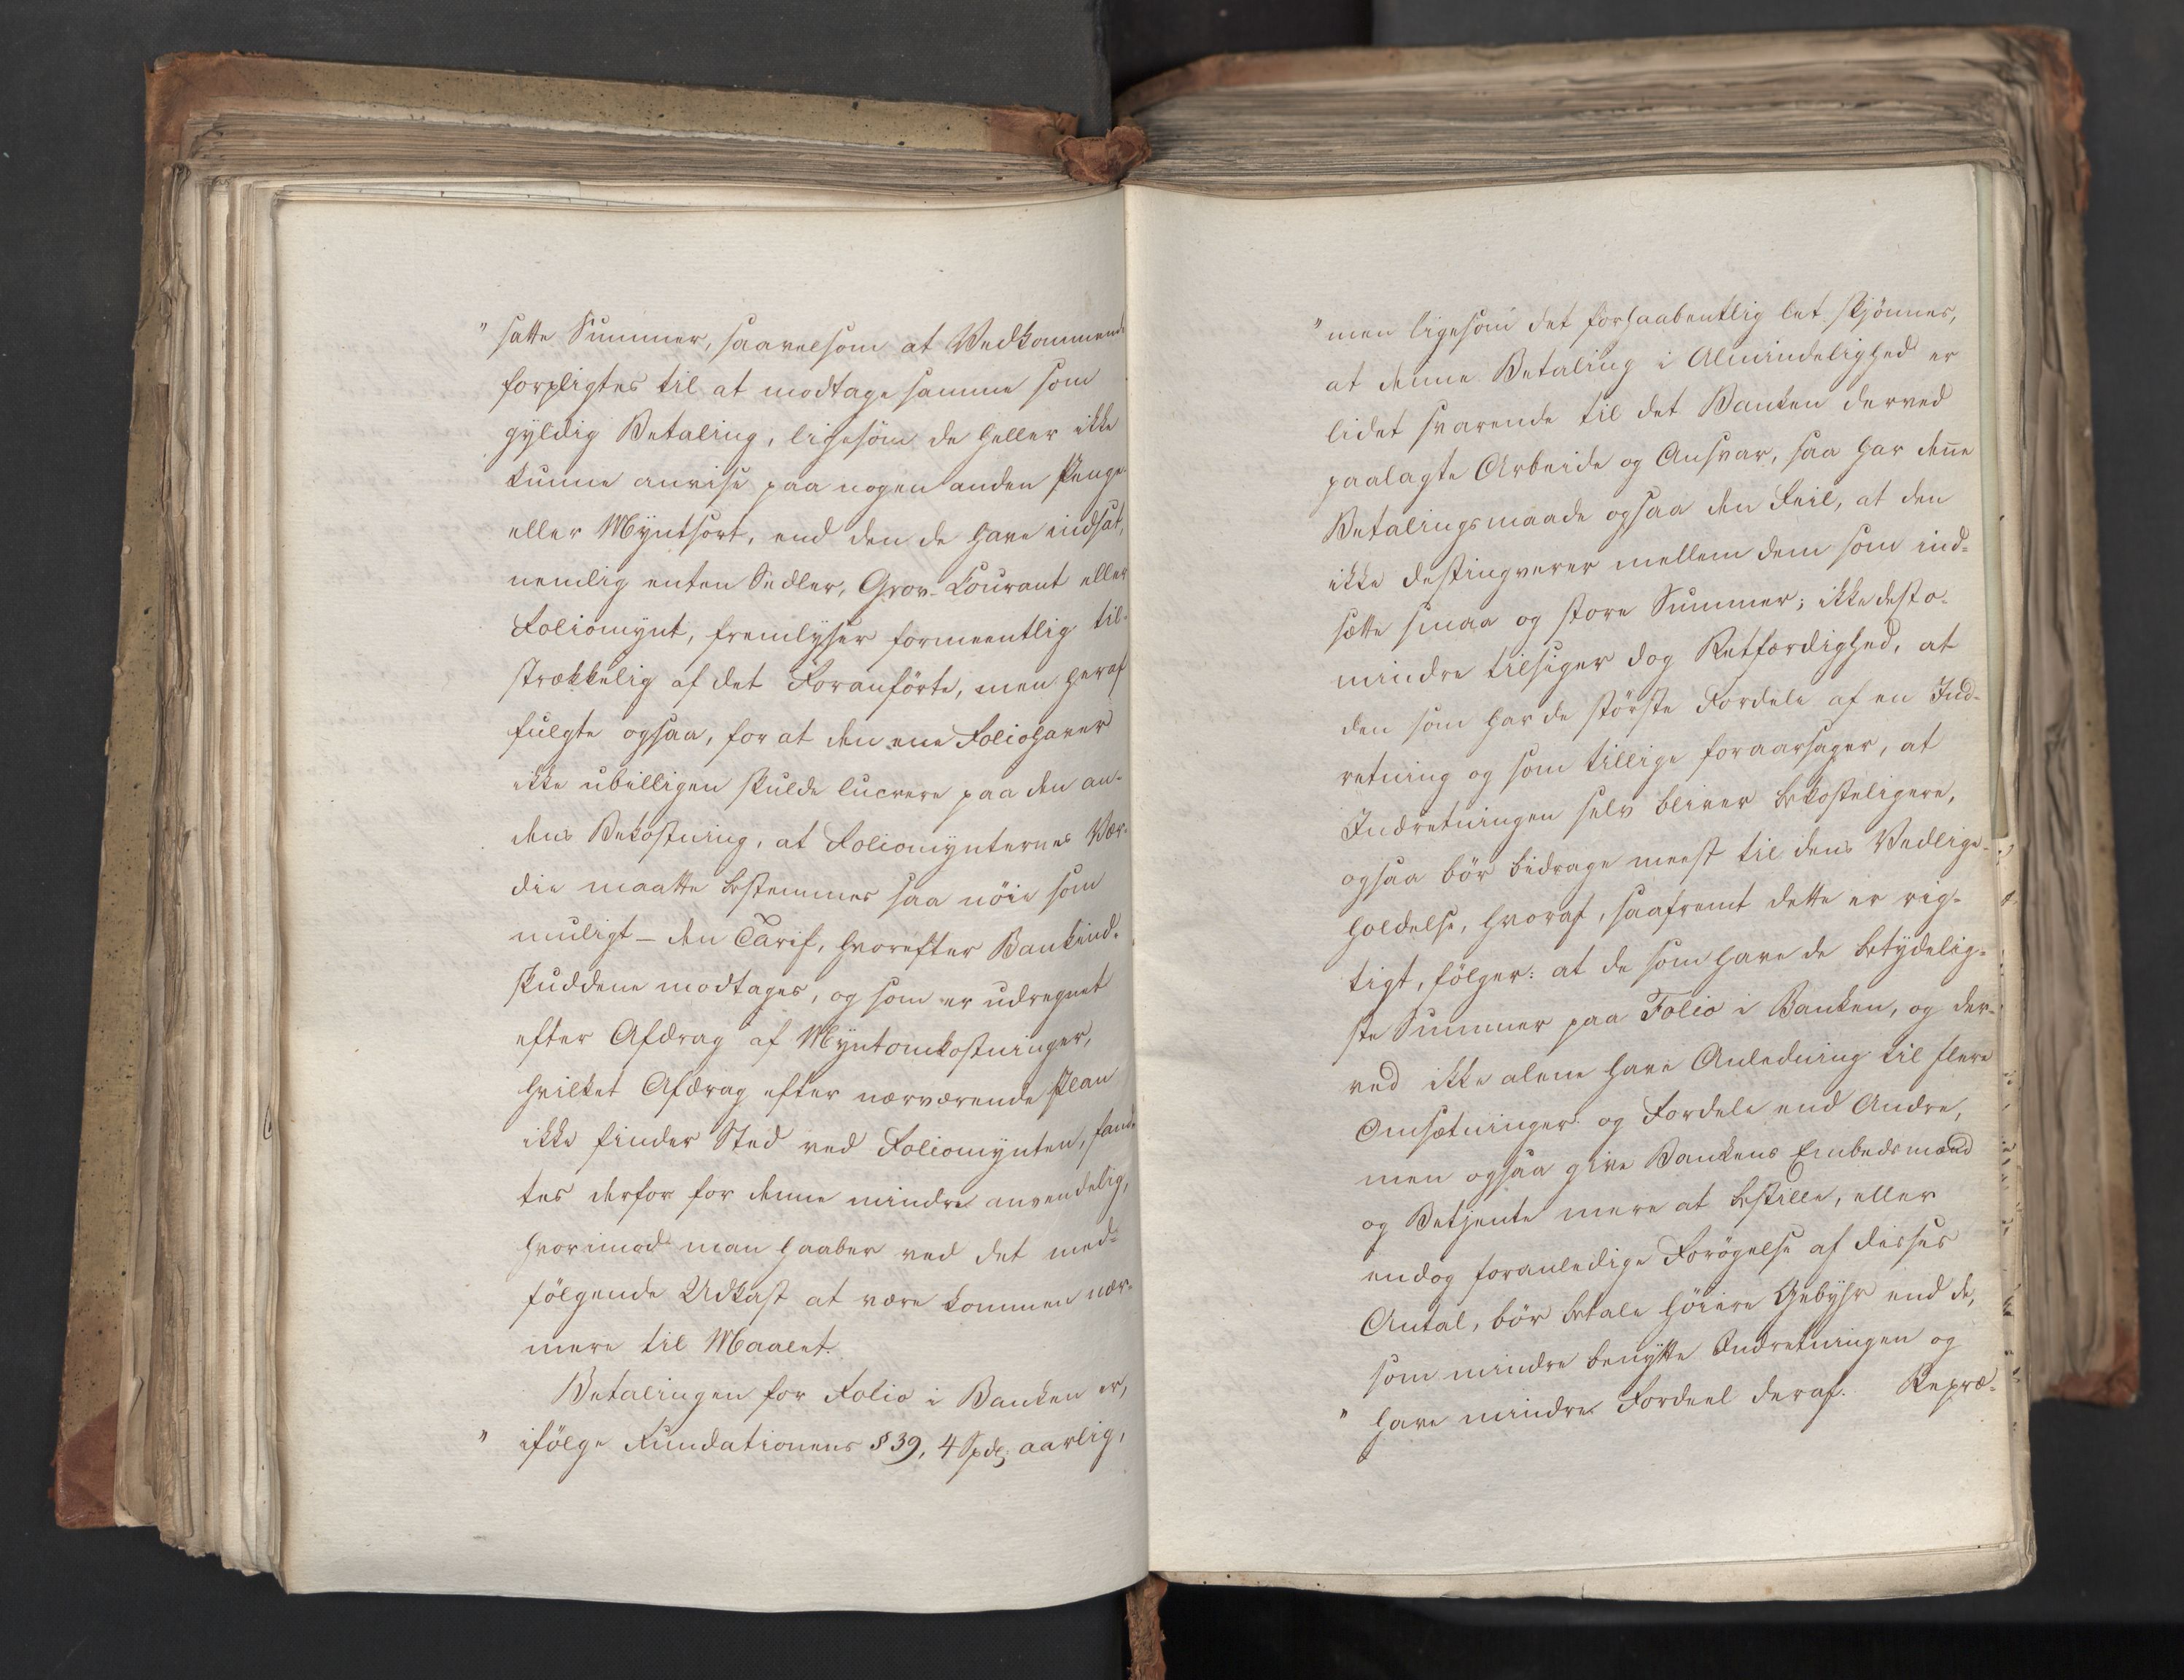 " satte Summer, saavelsom at Vedkommende
forpligtes til at modtage samme som
gyldig Betaling, ligesom de heller ikke
kunne anvise paa nogen anden Penge-
eller Myntsort, end den de have indsat,
nemlig enten Sedler, Grov-Courant eller
Foliomynt, fremlyser formeentlig til-
strækkelig af det Foranförte, men heraf
fulgte ogsaa, for at den ene Foliohaver
ikke ubilligen skulde lucrere paa den an-
dens Bekostning, at Foliomynternes Vær-
die maatte bestemmes saa nöie som
muligt – den Tarif, hvorefter Bankind-
skuddene modtages, og som er udregnet
efter Afdrag af Myntomkostninger,
hvilket Afdrag efter nærværende Plan
ikke finder Sted ved Foliomynten, fand-
tes derfor for denne mindre anvendelig,
hvorimod man haaber ved det med-
fölgende Udkast at være kommen nær-
mere til Maalet.
Betalingen for Folio i Banken er,
" ifölge Fundationens § 39, 4 Spd. aarlig,
" men ligesom det forhaabentlig let skjönnes,
at denne Betaling i Almindelighed er
lidet svarende til det Banken derved
paalagte Arbeide og Ansvar, saa har deñe
Betalingsmaade ogsaa den Feil, at den
ikke destingverer mellem dem som ind-
sætte smaa og store Summer; ikke desto-
mindre tilsiger dog Retfærdighed, at
den som har de störste Fordele af en Ind-
retning og som tillige foraarsager, at
Indretningen selv bliver bekosteligere,
ogsaa bör bidrage meest til dens Vedlige-
holdelse, hvoraf, saafremt dette er rig-
tigt, fölger: at de som have de betydelig-
ste Summer paa Folio i Banken, og der-
ved ikke alene have Anledning til flere
Omsætninger og Fordele end Andre,
men ogsaa give Bankens Embedsmænd
og Betjente mere at bestille, eller
endog foranledige Forögelse af disses
Antal, bör betale höiere Gebyhr end de,
som mindre benytte Indretningen og
" have mindre Fordeel deraf. Repræ-